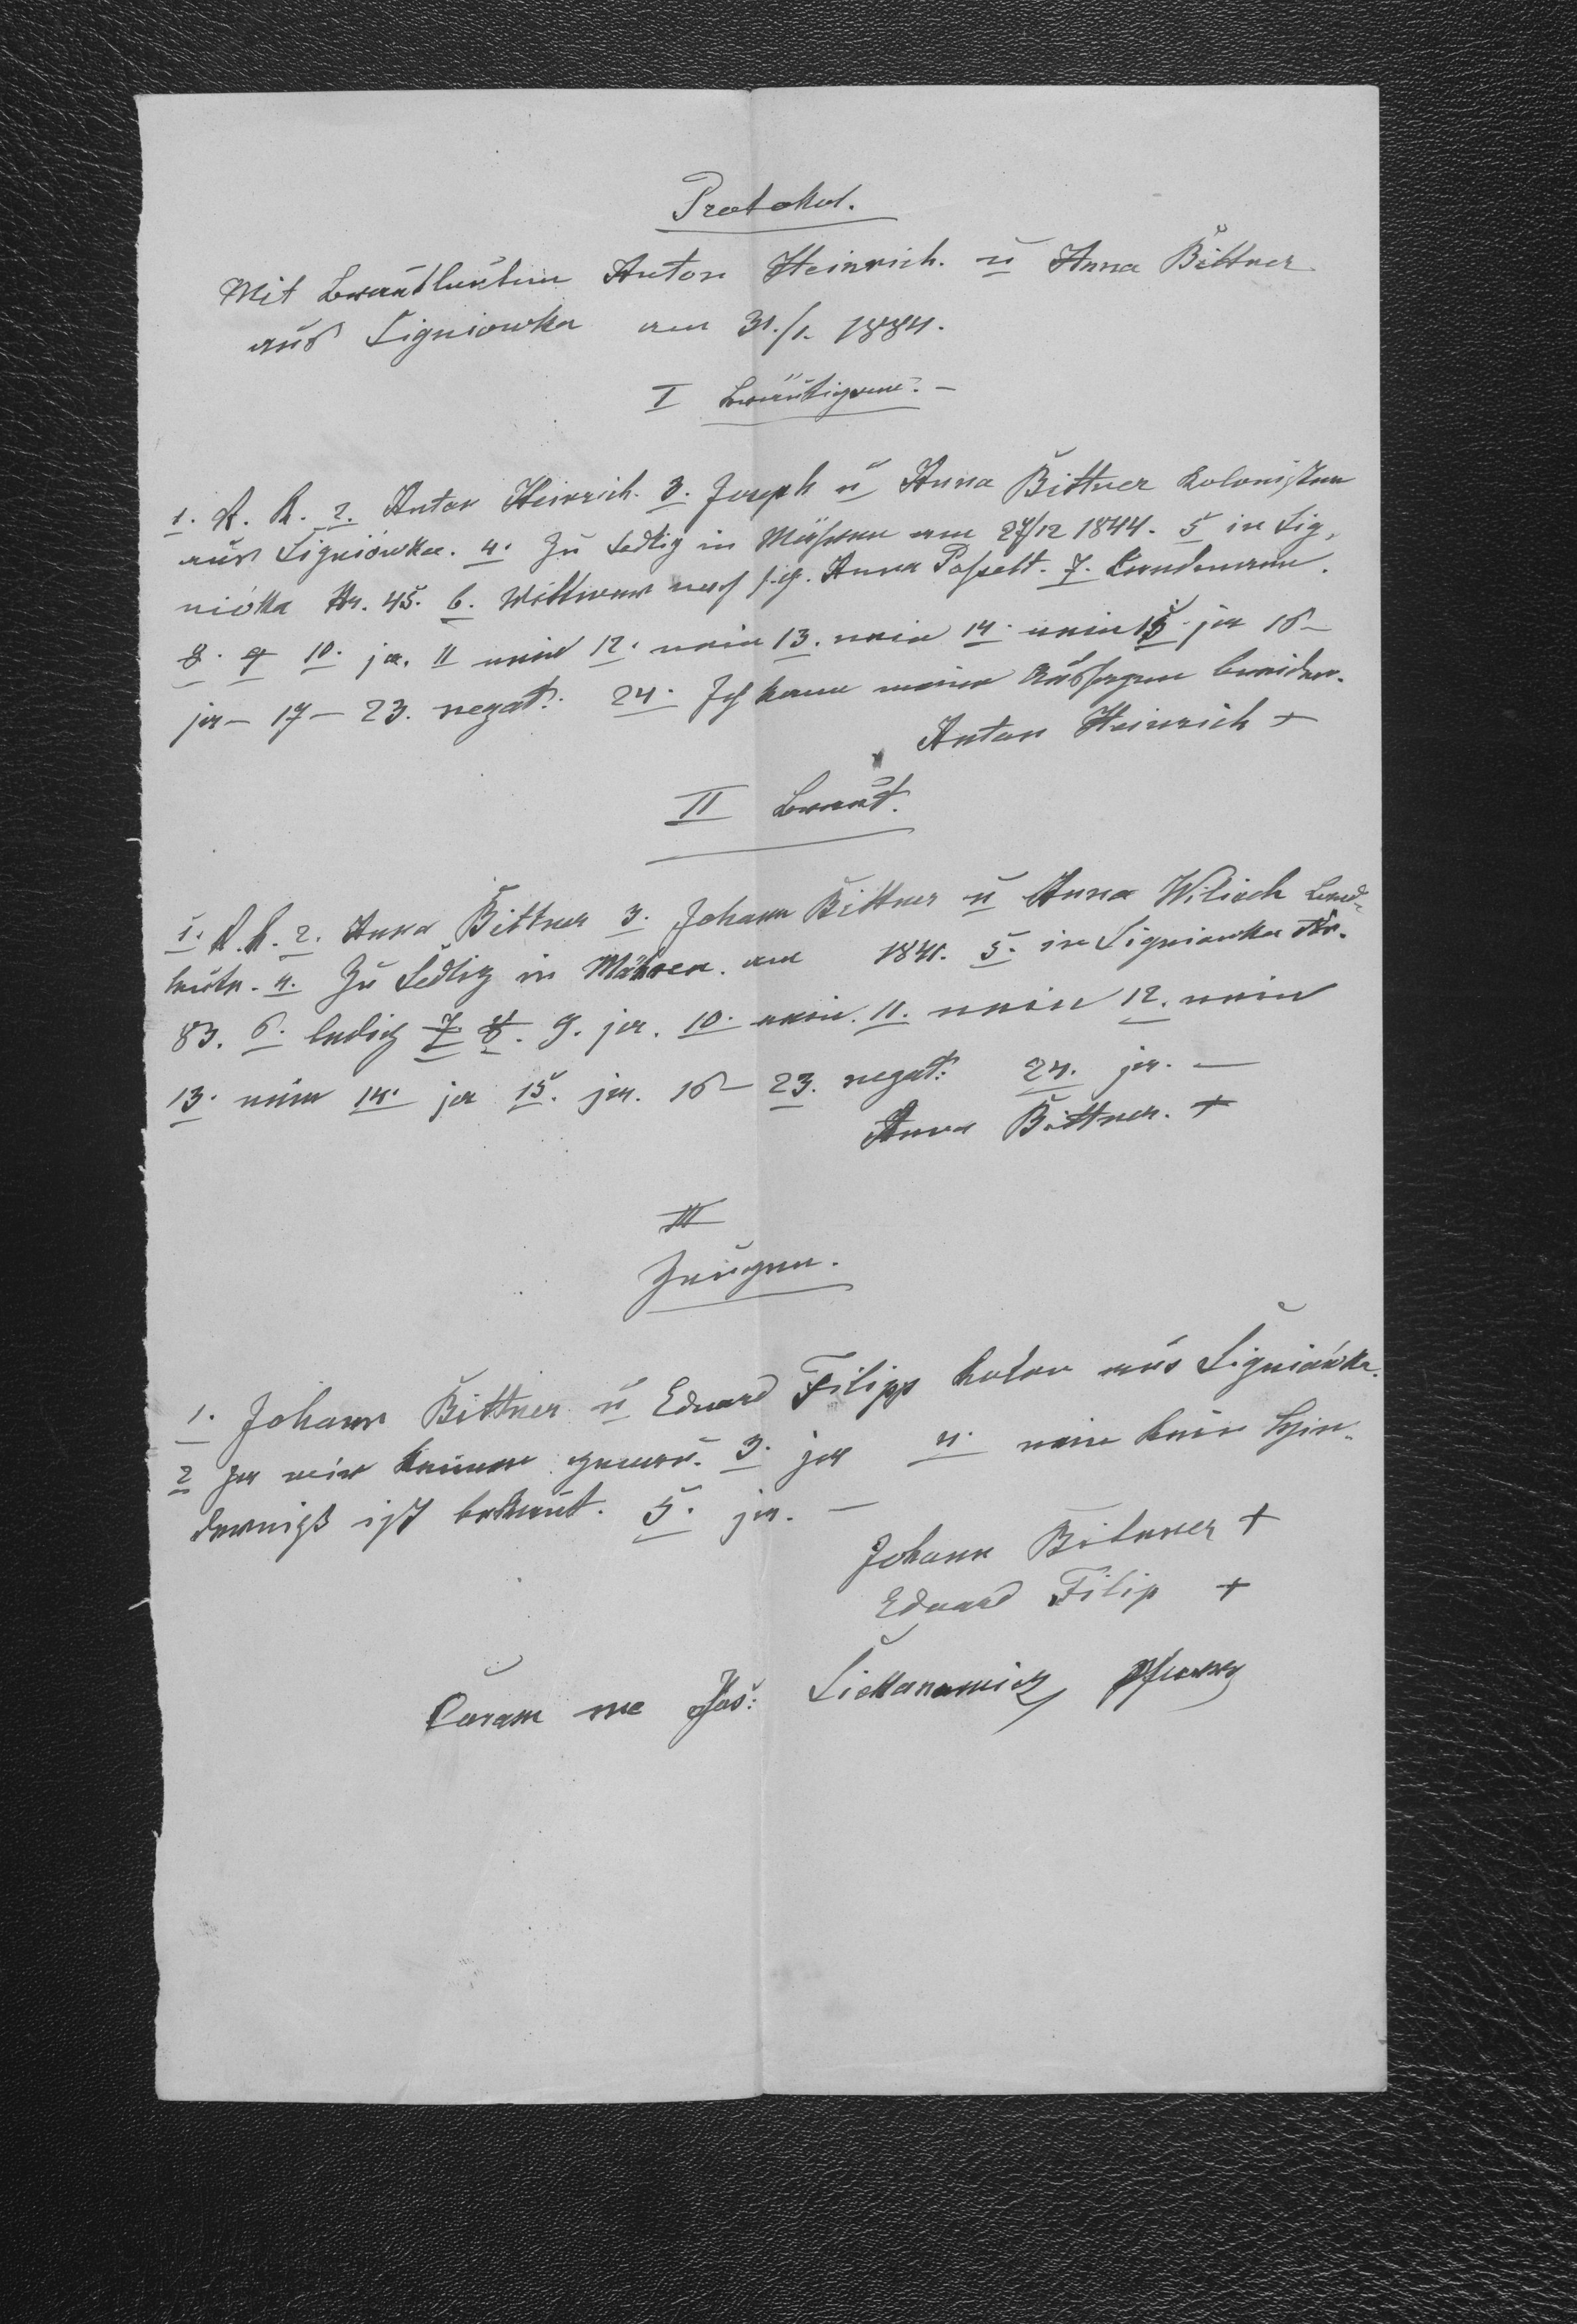 Protokol.
Mit Brautleuten Anton Heinrich. u Anna Bittner
aus Ligniowka am 31./1. 1884.
I Bräutigam. –
1. R. K. 2. Anton Heinrich. 3. Joseph u Anna Bittner Kolonisten
aus Ligniówka. 4. Zu Sedliz in Mähren am 27/12 1844. 5 in Lig,
niókka Nr. 45. 6. Wittwer nach s. g. Anna Posselt. 7. Landmann.
8. 9 10. ja. 11 nein 12. nein 13. nein 14. nein 15. ja 16 –
ja – 17 – 23. negat: 24. Ich kann meine Aussagen beeiden.
Anton Heinrich +
II Braut.
1. R. K. 2. Anna Bittner 3. Johann Bittner u Anna Land-
leute. 4. Zu Sedliz in Mähren. am 1841. 5. in Ligniowka Nr.
83. 6. ledig 7 8. 9. ja. 10. nein. 11. nein 12. nein
13. nein 14. ja 15. ja. 16 – 23. negat: 24. ja. –
Anna Bittner. +
III
Zeugen.
1. Johann Bittner u Eduard Filipp Kolon aus Ligniówka.
2 Ja wir kennen genau. 3. ja 4. nein kein Hin-
derniß ist bekannt. 5. ja. –
Johann Bitnner +
Eduard Filip +
Coram me Jos: Pfarrer